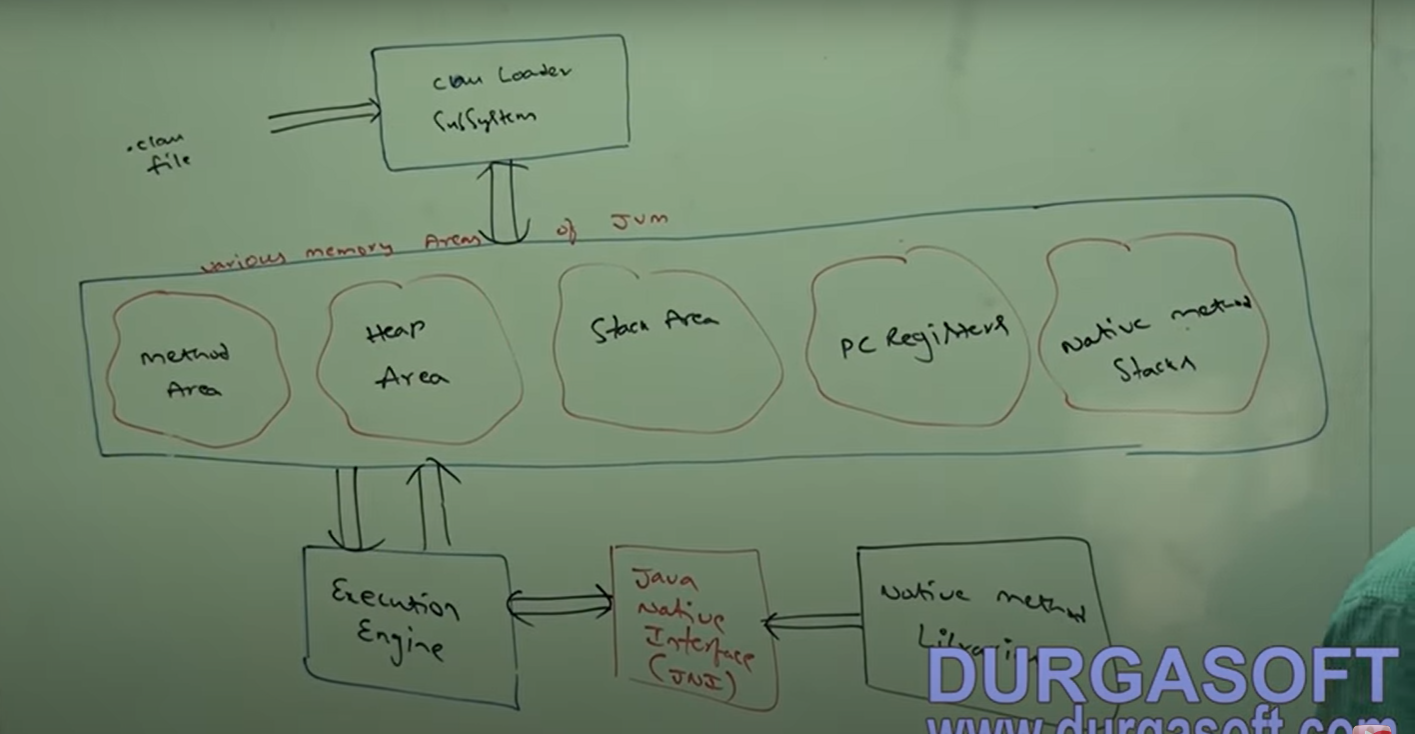 .class
file
Class Loader
SubSystem
various memory Areas of JVM
method
Area
Heap
Area
Stack Area
PC Registers
Native method
Stacks
Execution
Engine
Java
Native
Interface
(JNI)
Native method
Libraries
DURGASOFT
www.durgasoft.com